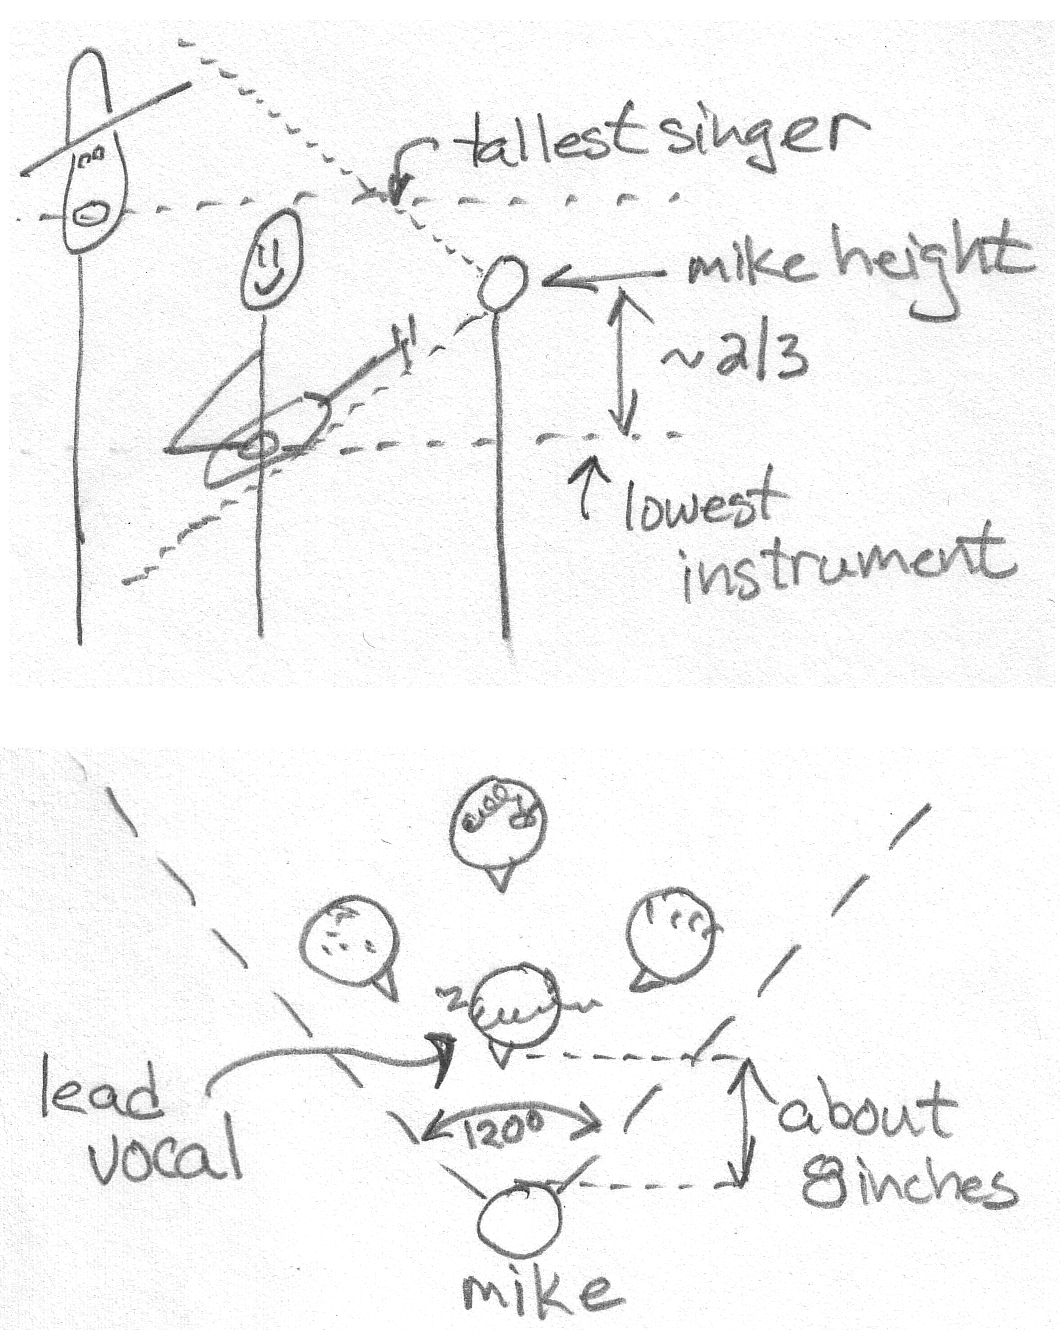 tallest singer
mike height
~2/3
lowest
instrument
lead
vocal
120°
about
8 inches
mike